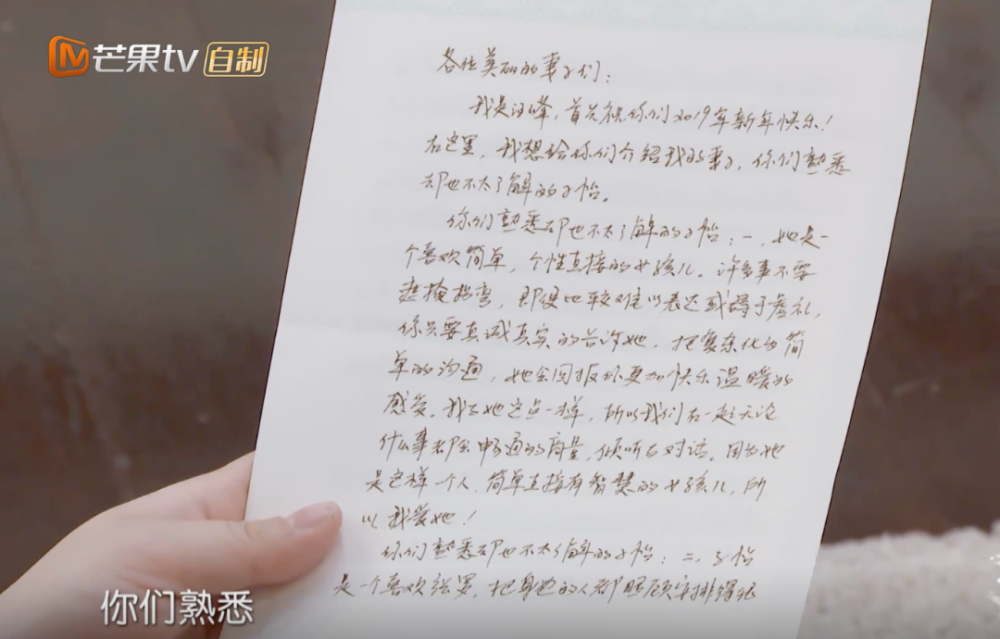 芒果tv 自制
各位美丽的妻子们：
我是汪峰，首先祝你们2019年新年快乐！
在这里，我想给你们介绍我的妻子，你们熟悉
却也不太了解的子怡。
你们熟悉却也不太了解的子怡：一，她是一
个喜欢简单，个性直接的女孩儿。许多事不要
遮掩拐弯，即便比较难以表达或碍于虚礼，
你只要真诚真实的告诉她，把复杂化为简
单的沟通，她会回报你更加快乐温暖的
感受。我与她这点一样，所以我们在一起无论
什么事都会畅通的商量，倾听与对话。因为她
是这样一个人，简单直接有智慧的女孩儿，所
以我爱她！
你们熟悉却也不太了解的子怡：二，子怡
是一个喜欢张罗，把身边的人都照顾安排得很
你们熟悉